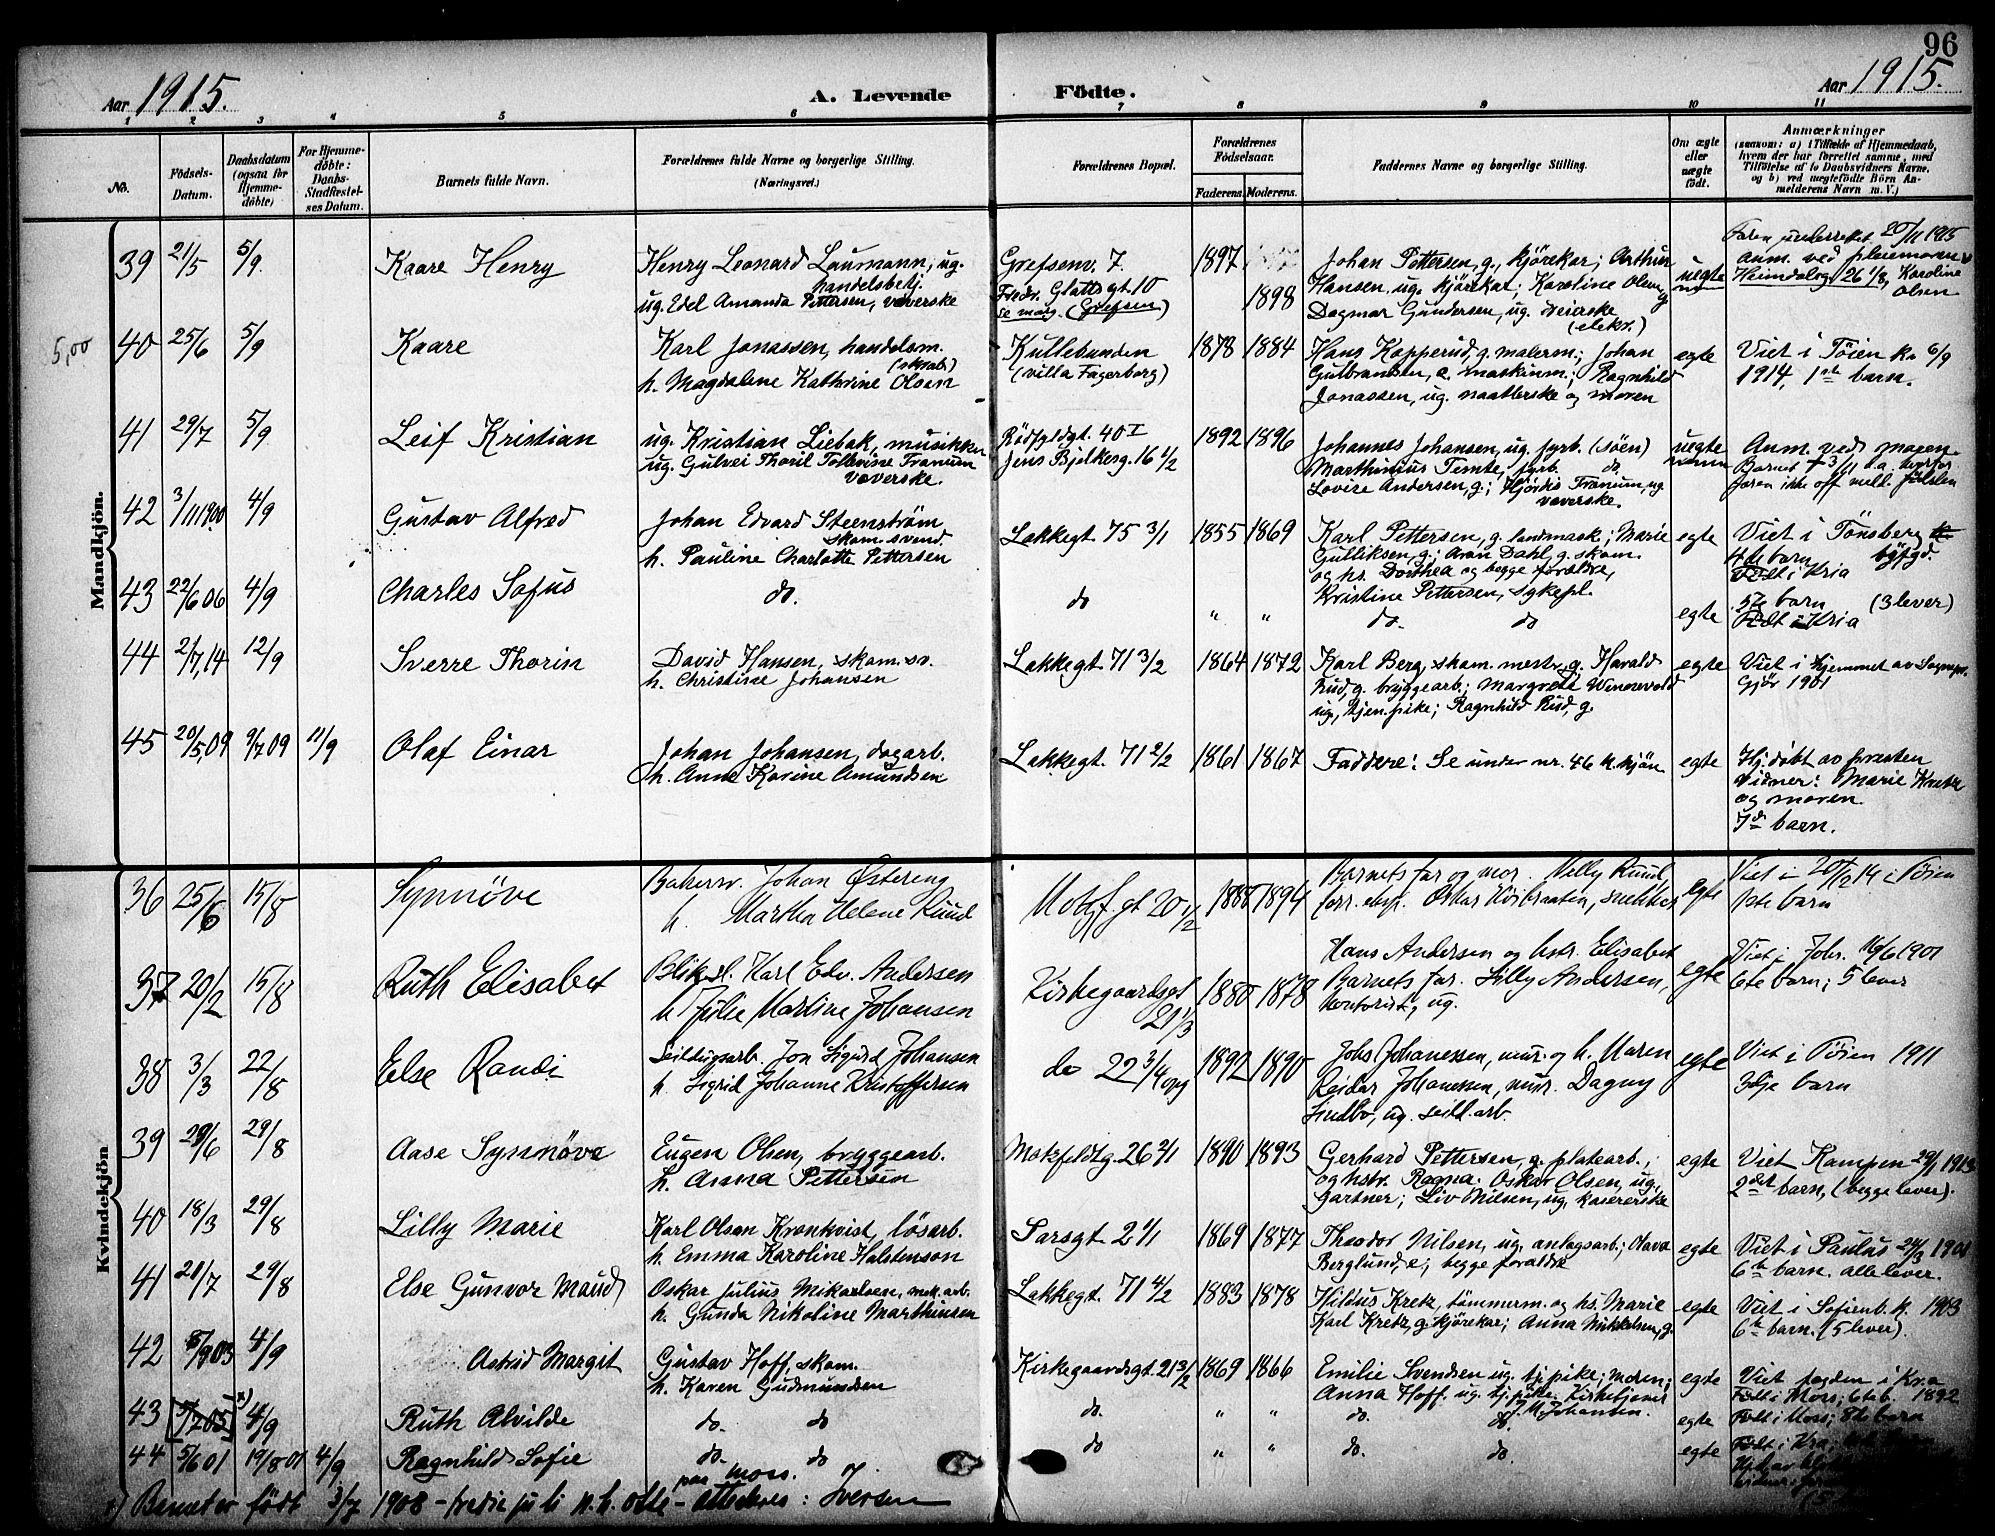 96
Aar 1915.
A. Levende Födte.
Aar 1915.
1 2 3 4 5 6 7 8 9 10 11
No.
Födsels-
Datum.
Daabsdatum
(ogsaa for
Hjemme-
döbte)
For Hjemme-
döbte:
Daabs-
Stadfæstel-
ses Datum.
Barnets fulde Navn.
Forældrenes fulde Navne og borgerlige Stilling.
(Næringsvei.)
Forældrenes Bopæl.
Forældrenes
Födselsaar.
Faderens. Moderens.
Faddernes Navne og borgerlige Stilling.
Om ægte
eller
uægte
födt.
Anmærkninger
(saasom: a) i Tilfælde af Hjemmedaab,
hvem der har forrettet samme, med
Tilföielse af to Daabsvidners Navne,
og b) ved uægtefödte Börn An-
melderens Navn m. V.)
Mandkjön.
39 21/5 5/9. Kaare Henry
Henry Leonard Laumann, ug.
handelsbetj.
ug. Edel Amanda Pettersen, væverske
Grefsenv. 7.
Fredr. Glatts gt 10
(Grefsen)
1897
1898
Johan Pettersen, g., kjörekar; Arthur
Hansen, ug. kjörekar; Karoline Olsen, g
Dagmar Gundersen, ug. veierske
(elekr.)
uegte
Faren underrettet 20/11 1915
anm. ved pleiemoren
Heimdalsg 26 1/3, Karoline
Olsen
5,00
40 25/6 5/9 Kaare
Karl Jonassen, handelsm.
(skrab)
h. Magdalene Kathrine Olsen
Kullebunden
(villa Fagerborg)
1878 1884
Hans Kopperud, g. malerm.; Johan
Gulbransen, e. maskinm.; Ragnhild
Jonassen, ug. naatlerske og moren
egte
Viet i Töien k. 6/9
1914, 1ste barn.
41 29/7 5/9 Leif Kristian
ug. Kristian Liebak, musikker
ug. Gulvei Thoril Tollevine Franum
væverske.
Rödfyldgt. 40 I
Jens Bjelkesg. 16 1/2
1892 1896
Johannes Johansen, ug. fyrb. (söen)
Marthinius Temte, fyrb. do.
Lovise Andersen, g.; Hjördis Franum, ug
væverske.
uegte
Anm. ved moren.
Barnet + 3/11 d.a. hvorfor
faren ikke off meld. födslen
42 3/11 1900 4/9 Gustav Alfred
Johan Edvard Steenström
skom. svend.
h. Pauline Charlotte Pettersen
Lakkegt 75 3/1
1855 1869
Karl Pettersen, g. landmask.; Marie
Gulliksen, g.; Aron Dahl, g. skom.
og hs. Dorthea og begge forældre,
Kristine Pettersen, sykepl.
egte
Viet i Tönsberg
4de barn byfgd.
Födt i Kria
43 22/6 06 4/9 Charles Sofus
do. do
" "
do. do
egte
5te barn (3 lever)
Födt i Kria
44 2/7, 14 12/9 Sverre Thorin
David Hansen, skom. sv.
h. Christine Johansen
Lakkegt. 71 3/2
1864 1872
Karl Berg, skom. mestr, g. Harald
Rud, g. bryggearb.; Margrete Wennevold
ug., tjen.pike; Ragnhild Rud, g.
egte
Viet i Hjemmet av Sognepr.
Gjör 1901
45 20/5, 09 9/7 09 11/9 Olaf Einar
Johan Johansen, dagarb.
h. Anne Karine Amundsen
Lakkegt. 71 2/2
1861 1867
Faddere: Se under nr. 46 k. kjön
egte
Hj. döbt av præsten
Vidner: Marie Kretz
og moren.
7de barn.
Kvindekjön
36 25/6 15/8 Synnöve
Bakersv. Johan Østereng
h. Martha Helene Ruud
Motzf. gt 20 1/2
1885 1894
Barnets far og mor. Nelly Ruud,
forr. eksp. Oskar Höibraaten, snekker
egte
Viet i 20/12 14 i Töien
1ste barn
37 20/2 15/8 Ruth Elisabet
Bliksl. Karl Edv. Andersen
h Julie Martine Johansen
Kirkegaardsgt
21 1/3
1880 1878
Hans Andersen og hstr. Elisabet
Barnets far. Lilly Andersen,
kontorist, ug.
egte
Viet i Joh. 16/6 1901
6te barn; 5 lever
38 3/3 22/8 Else Randi
Seildugsarb. Jon Sigurd Johansen
h. Sigrid Johanne Kristoffersen
do 22 3/4 opg
1892 1890
Johs Johanessen, mur. og h. Maren
Reidar Johanessen, mur. Dagny
Lindbo, ug. seild. arb.
egte
Viet i Töien 1911
3dje barn
39 29/6 29/8 Aase Synnöve
Eugen Olsen, bryggearb.
h. Anna Pettersen
Motzfeldtg. 26 2/1
1890 1893
Gerhard Pettersen, g. platearb.,
og hstr. Ragna. Oskar Olsen, ug.,
Gartner; Liv Nilsen, ug. kasererske
egte
Viet Kampen 29/1 1913
2det barn, (begge lever).
40 18/3 29/8 Lilly Marie
Karl Olsen Kronkvist, lösarb.
h. Emma Karoline Halstenson
Sarsgt. 2 1/1
1869 1877
Theodor Nilsen, ug. anlagsarb.; Olava
Berglund, e; begge forældre
egte
Viet i Paulus 24/3 1901
6te barn. alle lever.
41 21/7 29/8 Else Gunvor Maud
Oskar Julius Mikaelsen, mek. arb.
h. Gunda Nikoline Marthinsen
Lakkegt. 71 4/2
1883 1878
Nilius Kretz, tömmerm. og hs. Marie
Karl Kretz, g. kjörekar; Anna Mikkelsen, g.
egte
Viet i Sofienb. k. 1903
6te barn. (5 lever).
42 8/9 03 4/9 Astrid Margit
Gustav Hoff, skom.
h. Karen Gudmundsen
Kirkegaardsgt. 21 3/2
1869 1866
Emilie Svendsen ug. tj. pike; moren;
Anna Hoff. ug. tj. pike. Kirketjener
J. M. Johansen.
egte
Viet i Kra
Födt i Moss; 6te b. 1892
43 4/9 Ruth Alvilde
do. do do.
" "
do. do.
egte
Födt i Moss; 8de barn
44 5/6 01 19/8 01 4/9 Ragnhild Sofie
do. do do
" "
do. do.
egte
Födt i Kra;
Barnet er födt 3/7 1908 – tredie juli n.h. otte – Attesteres: Iversen